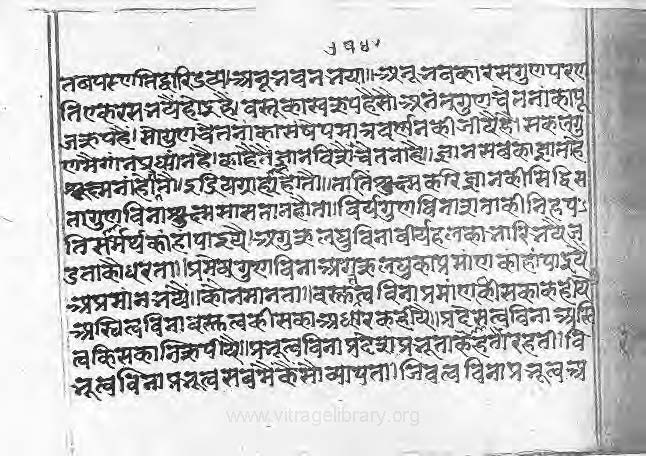 १४
तबपरणतिद्वारिद्रव्य।अनूनवननया॥अनूनवकारसगुणपरण
तिएकरसनयैहोइहै।वस्तुकास्वरूपहैसो।अनंतगुणचेतनांकापू
जरूपहै। सोगुणचेतनाकासंषेपमात्रवर्णनकीजीयेहै।सकलगु
णमैग्यांनप्रधानहै।काहैतैज्ञानविशेषचेतनाहै॥ज्ञानसबकाज्ञाताहै
सूक्ष्मनांहोतौ।इंद्रियग्राह्यहोतौ॥तातिसूक्ष्मकरिज्ञानकीसिद्धिस
तागुणविनासूक्ष्मसासतानहोता॥वीर्यगुणविनासताकीनिहप
तिसमर्थकहांपाइयै।अगुरुलघुविनावीर्यहलकाभारीभयैज
डताकौधरता॥प्रमेयगुणविनाअगुरुलघुकाप्रमाणकाहांपाइयै
अप्रमांनभयै॥कौनमानता॥वस्तुत्वविनाप्रमाणकीसकाकहीयै
अस्तित्वविनावस्तुत्वकीसकाआधारकहीयै॥प्रदेसत्वविनाअस्ति
त्वकिसकानिरूपीयै॥प्रभूत्वविनाप्रदेशप्रभूताकैहतौरहती॥वि
भूत्वविनाप्रभूत्वसबमेकैसैव्यापता॥जिवत्वविनाप्रभूत्वअ
www.vitragelibrary.org